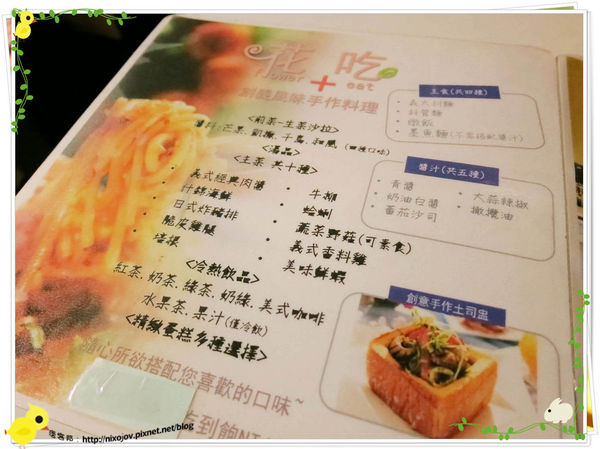 花 吃
flower + eat
創意風味手作料理
<前菜-生菜沙拉>
醬料:芒果,凱撒,千島,和風 (四種口味)
<湯品>
<主菜 共十種>
義式經典肉醬
什錦海鮮
日式炸豬排
脆皮雞腿
培根
牛柳
蛤蜊
蔬菜野菇(可素食)
義式香料雞
美味鮮蝦
<冷熱飲品>
紅茶,奶茶,綠茶,奶綠,美式咖啡
水果茶,果汁(僅冷飲)
<精緻蛋糕多種選擇>
隨心所欲搭配您喜歡的口味~
吃到飽NT
主食(共四種)
義大利麵
斜管麵
燉飯
墨魚麵(不需搭配醬汁)
醬汁(共五種)
青醬
奶油白醬
蕃茄沙司
大蒜辣椒
橄欖油
創意手作土司盅
痞客邦:http://nixojov.pixnet.net/blog